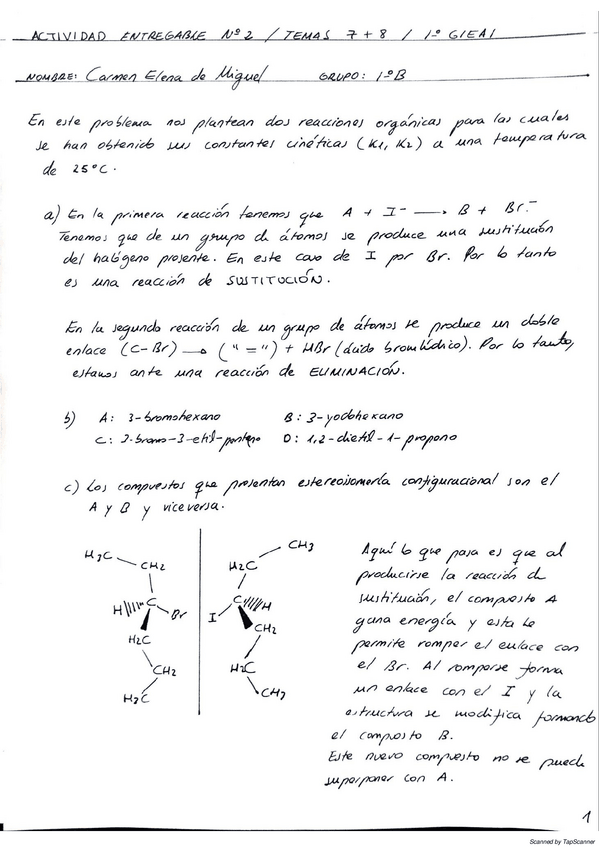 ACTIVIDAD ENTREGABLE Nº2 / TEMAS 7+8 / 1º GIEAI
NOMBRE: Carmen Elena de Miguel GRUPO: 1ºB
En este problema nos plantean dos reacciones orgánicas para las cuales
se han obtenido sus constantes cinéticas (K1, K2) a una temperatura
de 25ºC.
a) En la primera reacción tenemos que A + I⁻ → B + Br⁻.
Tenemos que de un grupo de átomos se produce una sustitución
del halógeno presente. En este caso de I por Br. Por lo tanto
es una reacción de SUSTITUCIÓN.
En la segunda reacción de un grupo de átomos se produce un doble
enlace (C-Br) → ("=") + HBr (ácido bromhídrico). Por lo tanto,
estamos ante una reacción de ELIMINACIÓN.
b) A: 3-bromohexano B: 3-yodohexano
C: 2-bromo-3-etil-pentano D: 1,2-dietil-1-propeno
c) Los compuestos que presentan estereoisomería configuracional son el
A y B y viceversa.
H3C CH2 H C Br H2C CH2 H3C
CH3 H2C I C H CH2 H2C CH3
Aquí lo que pasa es que al
producirse la reacción de
sustitución, el compuesto A
gana energía y esta le
permite romper el enlace con
el Br. Al romperse forma
un enlace con el I y la
estructura se modifica formando
el compuesto B.
Este nuevo compuesto no se puede
superponer con A.
1
Scanned by TapScanner